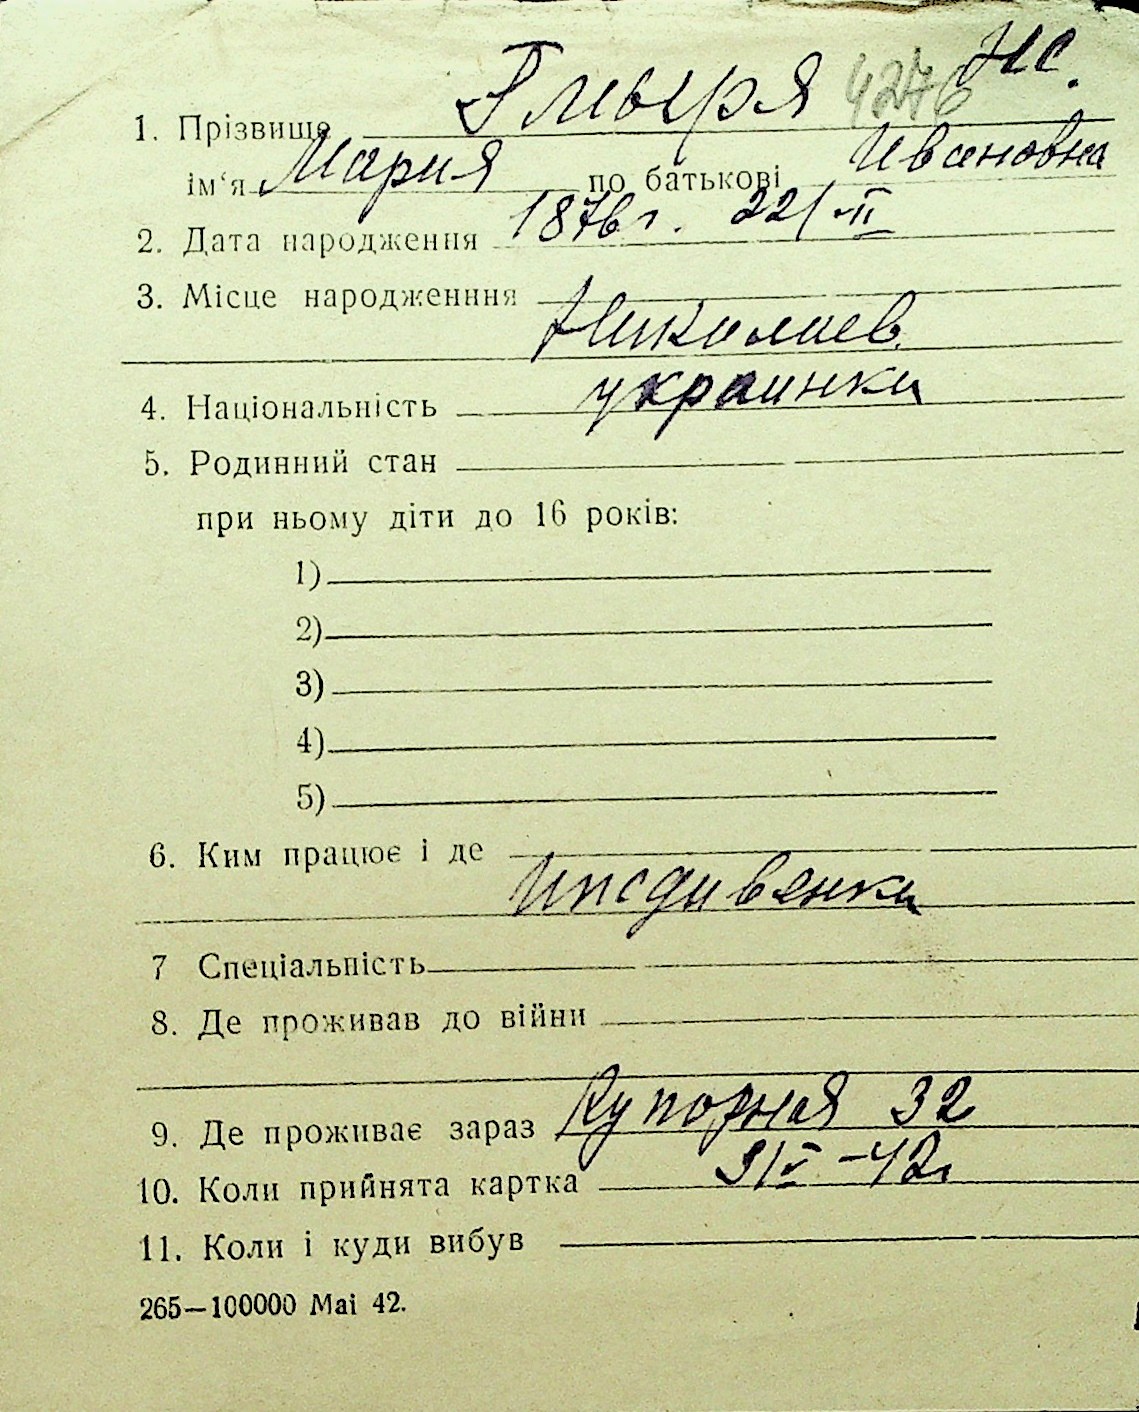 НС.
1. Прізвище Гмыря 4276
ім‘я Мария по батькові Ивановна
2. Дата народження 1876 г. 22/II
3. Місце народженння
Николаев.
4. Національність украинка
5. Родинний стан
при ньому діти до 16 років:
1)
2)
3)
4)
5)
6. Ким працює і де
Иждивенка
7 Спеціальність
8. Де проживав до війни
9. Де проживає зараз Купорная 32
10. Коли прийнята картка 9/V-42г
11. Коли і куди вибув
265—100000 Mai 42.